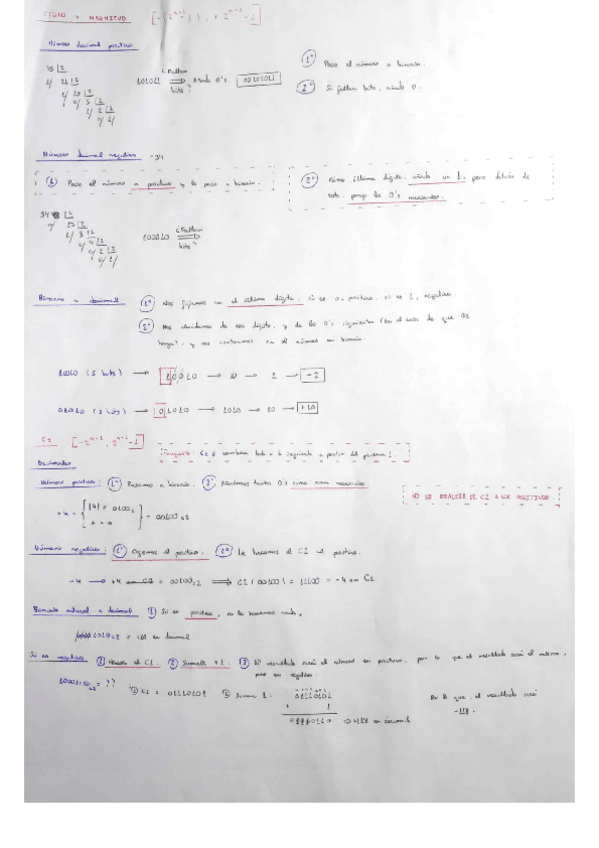 SIGNO Y MAGNITUD [-(2^n-1 -1), +2^n-1 -1]
Número decimal positivo
1º Paso el número a binario.
2º Si faltan bits, añado 0.
¿Faltan bits? añado 0's.
Número decimal negativo -34
1º Paso el número a positivo y lo paso a binario.
2º Como último dígito, añado un 1, pero detrás de
este, pongo los 0's necesarios.
100010 ¿Faltan bits?
Binario a decimal
1º Nos fijamos en el último dígito, si es 0, positivo, si es 1, negativo.
2º Nos olvidamos de ese dígito, y de los 0's siguientes (en el caso de que los
haya), y nos centramos en el número en binario.
10010 (5 bits) → 10010 → 10 → 2 → -2
01010 (5 bits) → 01010 → 1010 → 10 → +10
C2 [-2^n-1, 2^n-1 -1]
Truquito: C2 cambiar todo a la izquierda a partir del primer 1.
Decimales
Número positivo: 1º Pasamos a binario. 2º Añadimos tantos 0's como sean necesarios.
NO SE REALIZA EL C2 A LOS POSITIVOS.
Número negativo: 1º Cogemos el positivo. 2º Le hacemos el C2 al positivo.
-4 → +4 en C2 = 00100 C2 ⟹ C2(00100) = 11100 = -4 en C2
Binario natural a decimal 1 Si es positivo, no le hacemos nada.
en decimal
Si es negativo 1 Hacerle el C1. 2 Sumarle +1. 3 El resultado será el número en positivo, por lo que el resultado será el mismo,
pero en negativo.
= ?? 1 C1 = 01110101 2 Sumar 1: 01110101
+ 1
01110110 en decimal
Por lo que, el resultado será
-118.